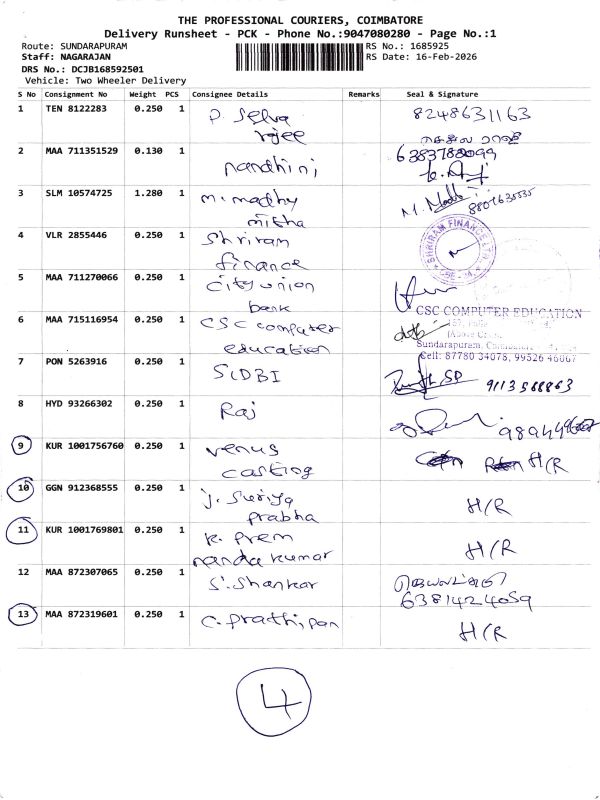 THE PROFESSIONAL COURIERS, COIMBATORE
Delivery Runsheet - PCK - Phone No.:9047080280 - Page No.:1
Route: SUNDARAPURAM
RS No.: 1685925
Staff: NAGARAJAN
RS Date: 16-Feb-2026
DRS No.: DCJB168592501
Vehicle: Two Wheeler Delivery
S No Consignment No Weight PCS Consignee Details Remarks Seal & Signature
1 TEN 8122283 0.250 1 P. Selva 8248631163
rajee
2 MAA 711351529 0.130 1 nandhini 6383788099
3 SLM 10574725 1.280 1 m. madhy
mitha
4 VLR 2855446 0.250 1 Shriram SHRIRAM FINANCE LTD
finance
5 MAA 711270066 0.250 1 City union
bank
6 MAA 715116954 0.250 1 CSC computer CSC COMPUTER EDUCATION
education Sundarapuram,
Cell: 87780 34078, 99526 46067
7 PON 5263916 0.250 1 SIDBI 9113588863
8 HYD 93266302 0.250 1 Raj
9 KUR 1001756760 0.250 1 venus H/R
casting
10 GGN 912368555 0.250 1 J. Suriya H/R
prabha
11 KUR 1001769801 0.250 1 K. Prem H/R
nanda kumar
12 MAA 872307065 0.250 1 S. Shankar
6381424059
13 MAA 872319601 0.250 1 C. Prathipan H/R
4